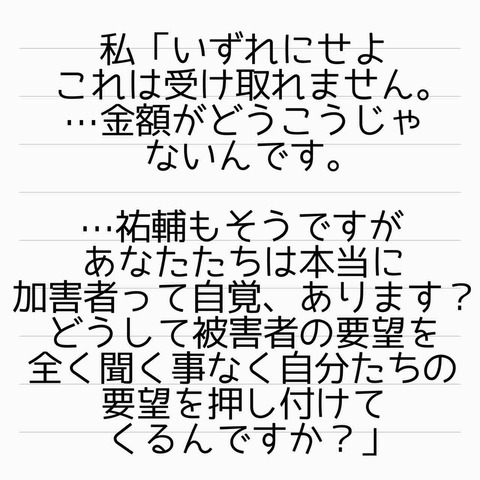 私「いずれにせよ
これは受け取れません。
…金額がどうこうじゃ
ないんです。
…祐輔もそうですが
あなたたちは本当に
加害者って自覚、あります？
どうして被害者の要望を
全く聞く事なく自分たちの
要望を押し付けて
くるんですか？」